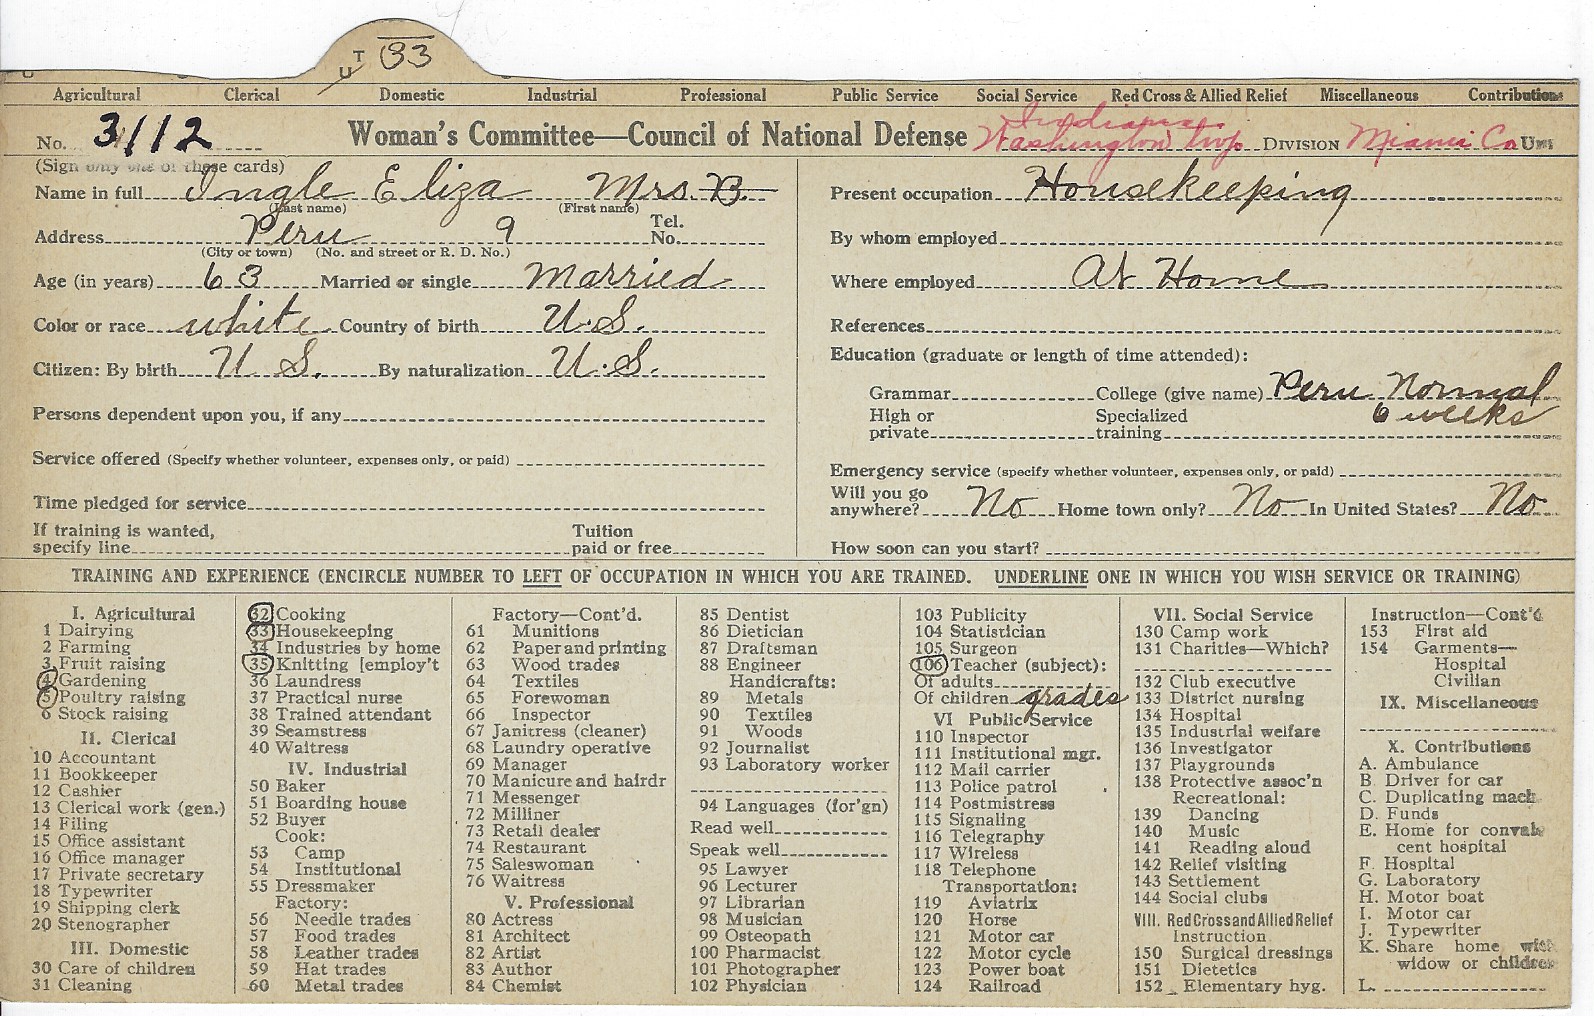 U T 33
Agricultural Clerical Domestic Industrial Professional Public Service Social Service Red Cross & Allied Relief Miscellaneous Contributions
No. 3112 Woman's Committee—Council of National Defense Indiana Washington twp. DIVISION Miami Co UNIT
(Sign only one of these cards)
Name in full Ingle Eliza Mrs. B.
(Last name) (First name)
Address Peru 9 Tel. No.
(City or town) (No. and street or R. D. No.)
Age (in years) 63 Married or single Married
Color or race white Country of birth U.S.
Citizen: By birth U.S. By naturalization U.S.
Persons dependent upon you, if any
Service offered (Specify whether volunteer, expenses only, or paid)
Time pledged for service
If training is wanted, specify line Tuition paid or free
Present occupation Housekeeping
By whom employed
Where employed At Home
References
Education (graduate or length of time attended):
Grammar College (give name) Peru Normal
High or private Specialized training 6 weeks
Emergency service (specify whether volunteer, expenses only, or paid)
Will you go anywhere? No Home town only? No In United States? No
How soon can you start?
TRAINING AND EXPERIENCE (ENCIRCLE NUMBER TO LEFT OF OCCUPATION IN WHICH YOU ARE TRAINED. UNDERLINE ONE IN WHICH YOU WISH SERVICE OR TRAINING)
I. Agricultural
1 Dairying
2 Farming
3 Fruit raising
4 Gardening
5 Poultry raising
6 Stock raising
II. Clerical
10 Accountant
11 Bookkeeper
12 Cashier
13 Clerical work (gen.)
14 Filing
15 Office assistant
16 Office manager
17 Private secretary
18 Typewriter
19 Shipping clerk
20 Stenographer
III. Domestic
30 Care of children
31 Cleaning
32 Cooking
33 Housekeeping
34 Industries by home
35 Knitting [employ't
36 Laundress
37 Practical nurse
38 Trained attendant
39 Seamstress
40 Waitress
IV. Industrial
50 Baker
51 Boarding house
52 Buyer
Cook:
53 Camp
54 Institutional
55 Dressmaker
Factory:
56 Needle trades
57 Food trades
58 Leather trades
59 Hat trades
60 Metal trades
Factory—Cont'd.
61 Munitions
62 Paper and printing
63 Wood trades
64 Textiles
65 Forewoman
66 Inspector
67 Janitress (cleaner)
68 Laundry operative
69 Manager
70 Manicure and hairdr
71 Messenger
72 Milliner
73 Retail dealer
74 Restaurant
75 Saleswoman
76 Waitress
V. Professional
80 Actress
81 Architect
82 Artist
83 Author
84 Chemist
85 Dentist
86 Dietician
87 Draftsman
88 Engineer
Handicrafts:
89 Metals
90 Textiles
91 Woods
92 Journalist
93 Laboratory worker
94 Languages (for'gn)
Read well
Speak well
95 Lawyer
96 Lecturer
97 Librarian
98 Musician
99 Osteopath
100 Pharmacist
101 Photographer
102 Physician
103 Publicity
104 Statistician
105 Surgeon
106 Teacher (subject):
Of adults
Of children grades
VI Public Service
110 Inspector
111 Institutional mgr.
112 Mail carrier
113 Police patrol
114 Postmistress
115 Signaling
116 Telegraphy
117 Wireless
118 Telephone
Transportation:
119 Aviatrix
120 Horse
121 Motor car
122 Motor cycle
123 Power boat
124 Railroad
VII. Social Service
130 Camp work
131 Charities—Which?
132 Club executive
133 District nursing
134 Hospital
135 Industrial welfare
136 Investigator
137 Playgrounds
138 Protective assoc'n
Recreational:
139 Dancing
140 Music
141 Reading aloud
142 Relief visiting
143 Settlement
144 Social clubs
VIII. Red Cross and Allied Relief
Instruction
150 Surgical dressings
151 Dietetics
152 Elementary hyg.
Instruction—Cont'd
153 First aid
154 Garments—
Hospital
Civilian
IX. Miscellaneous
X. Contributions
A. Ambulance
B. Driver for car
C. Duplicating mach.
D. Funds
E. Home for convalescent hospital
F. Hospital
G. Laboratory
H. Motor boat
I. Motor car
J. Typewriter
K. Share home with
widow or children
L.